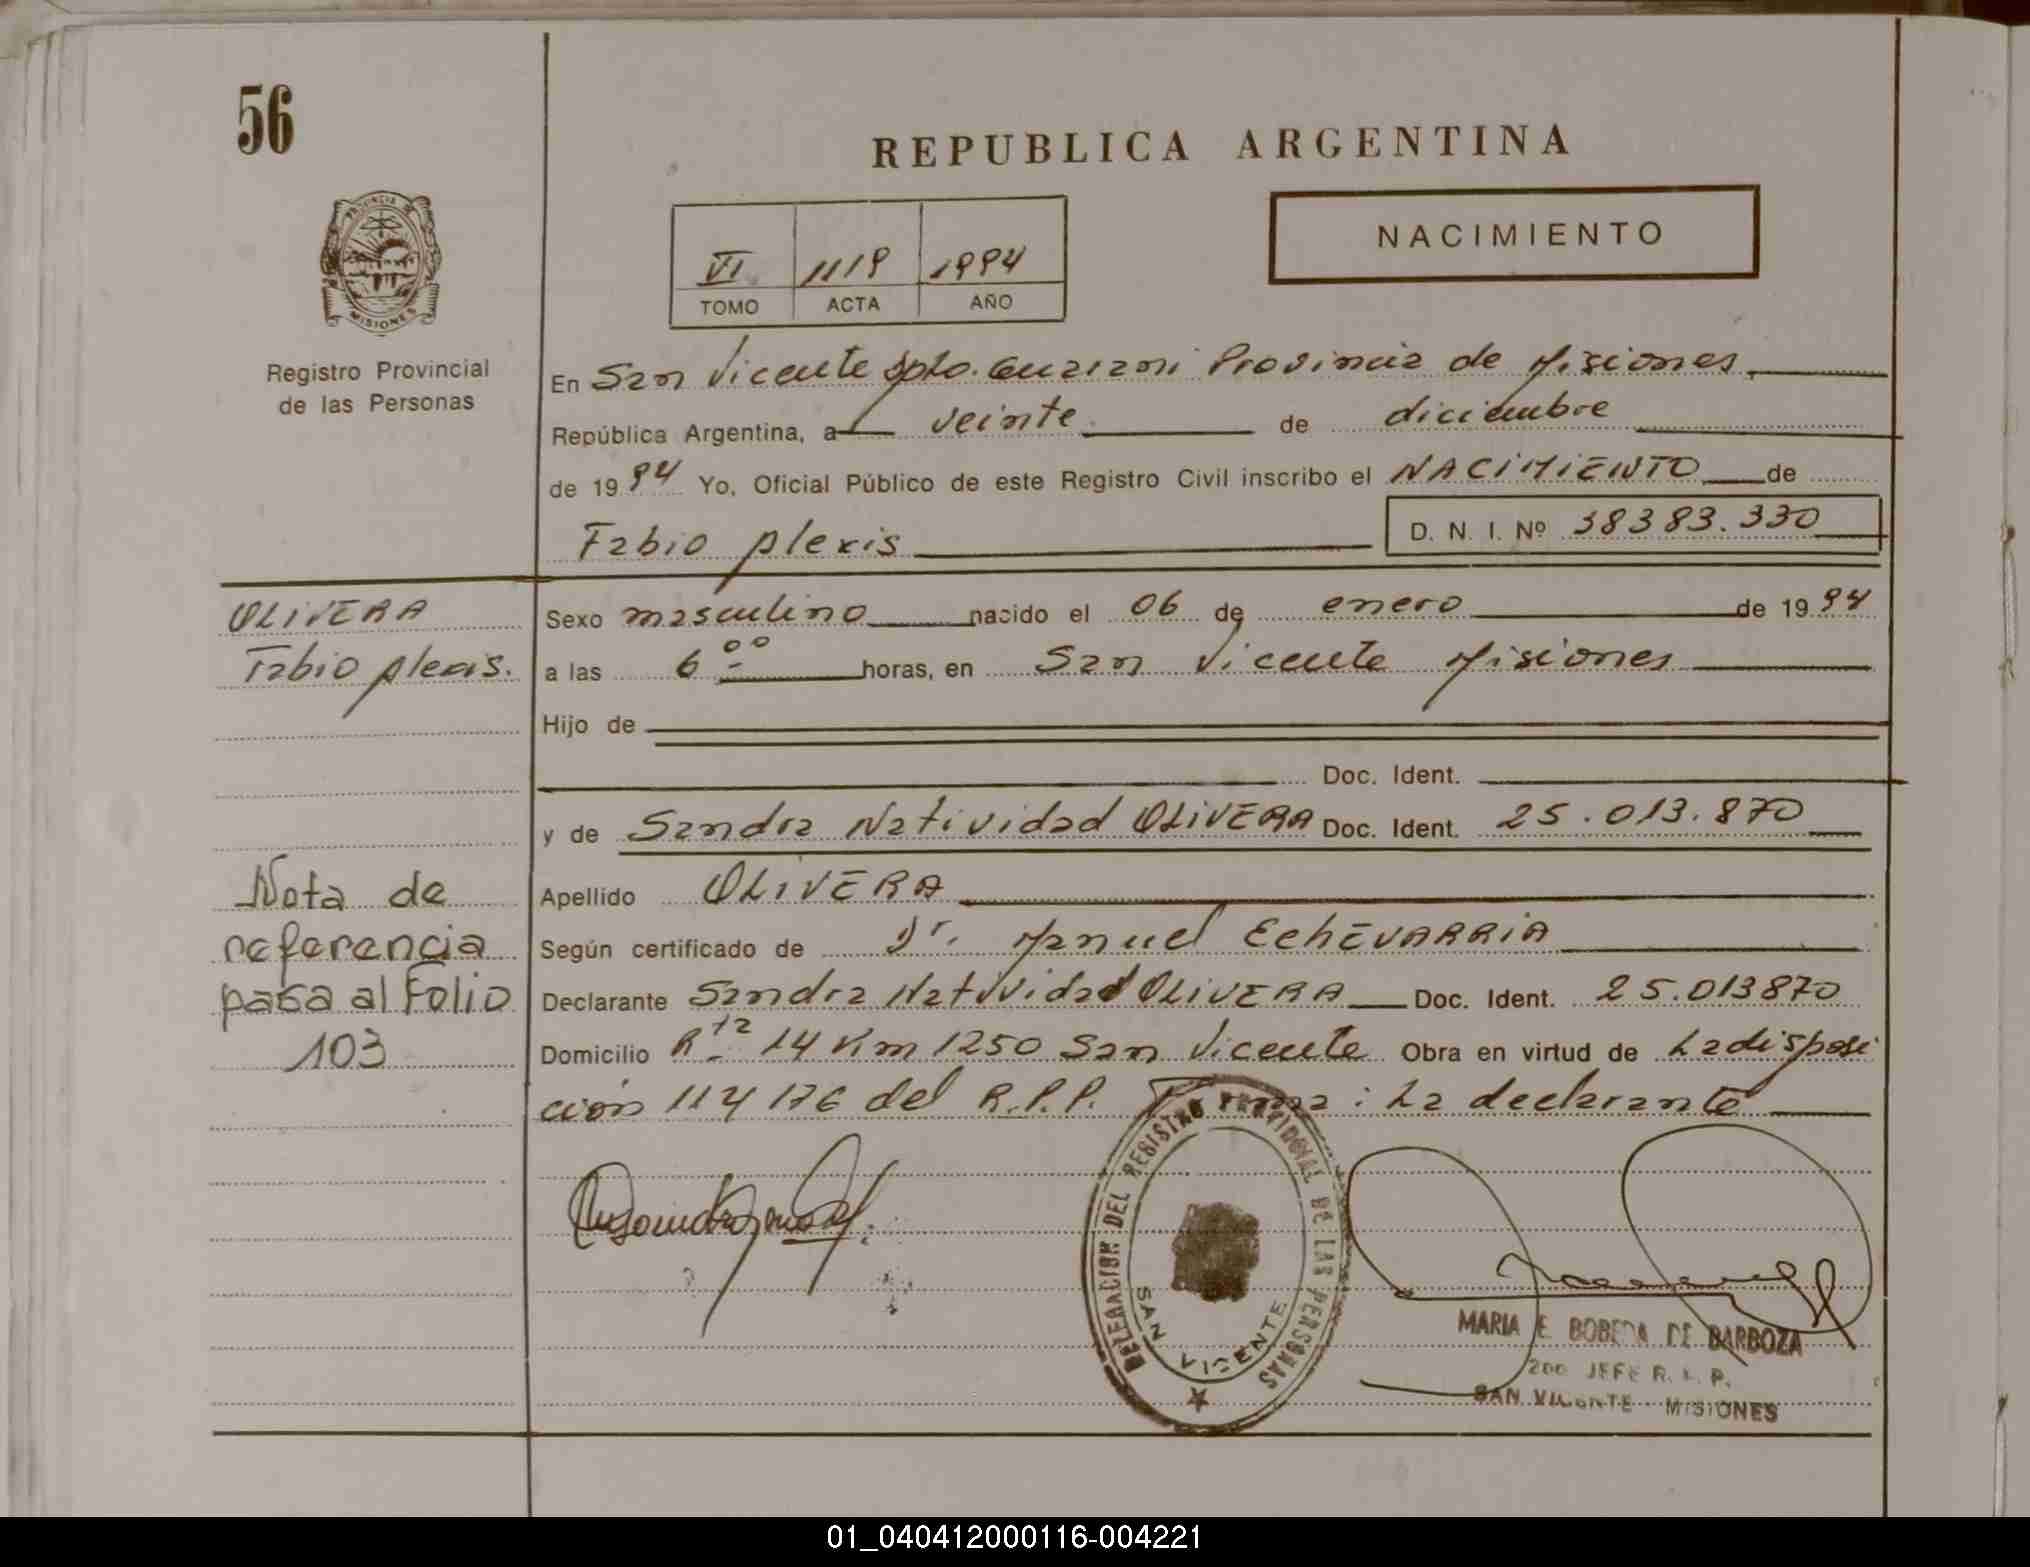 56
REPUBLICA ARGENTINA
PROVINCIA DE
MISIONES
Registro Provincial
de las Personas
VI 1119 1994
TOMO ACTA AÑO
NACIMIENTO
En San Vicente Dpto. Guarani Provincia de Misiones
República Argentina, a veinte de diciembre
de 1994 Yo, Oficial Público de este Registro Civil inscribo el NACIMIENTO de
Fabio Alexis D. N. I. Nº 38383.330
OLIVERA
Fabio Alexis.
Sexo masculino nacido el 06 de enero de 1994
a las 6 00 horas, en San Vicente Misiones
Hijo de
Doc. Ident.
y de Sandra Natividad OLIVERA Doc. Ident. 25.013.870
Nota de
referencia
pasa al Folio
103
Apellido OLIVERA
Según certificado de Dr. Manuel EchEVARRIA
Declarante Sandra Natividad OLIVERA Doc. Ident. 25.013870
Domicilio Rta 14 Km 1250 San Vicente Obra en virtud de La disposi
ción 114176 del R.P.P. Firma: La declarante
DELEGACION DEL REGISTRO PROVINCIAL DE LAS PERSONAS
SAN VICENTE
MARIA E. BOBEDA DE BARBOZA
2do JEFE R. P. P.
SAN VICENTE - MISIONES
01_040412000116-004221